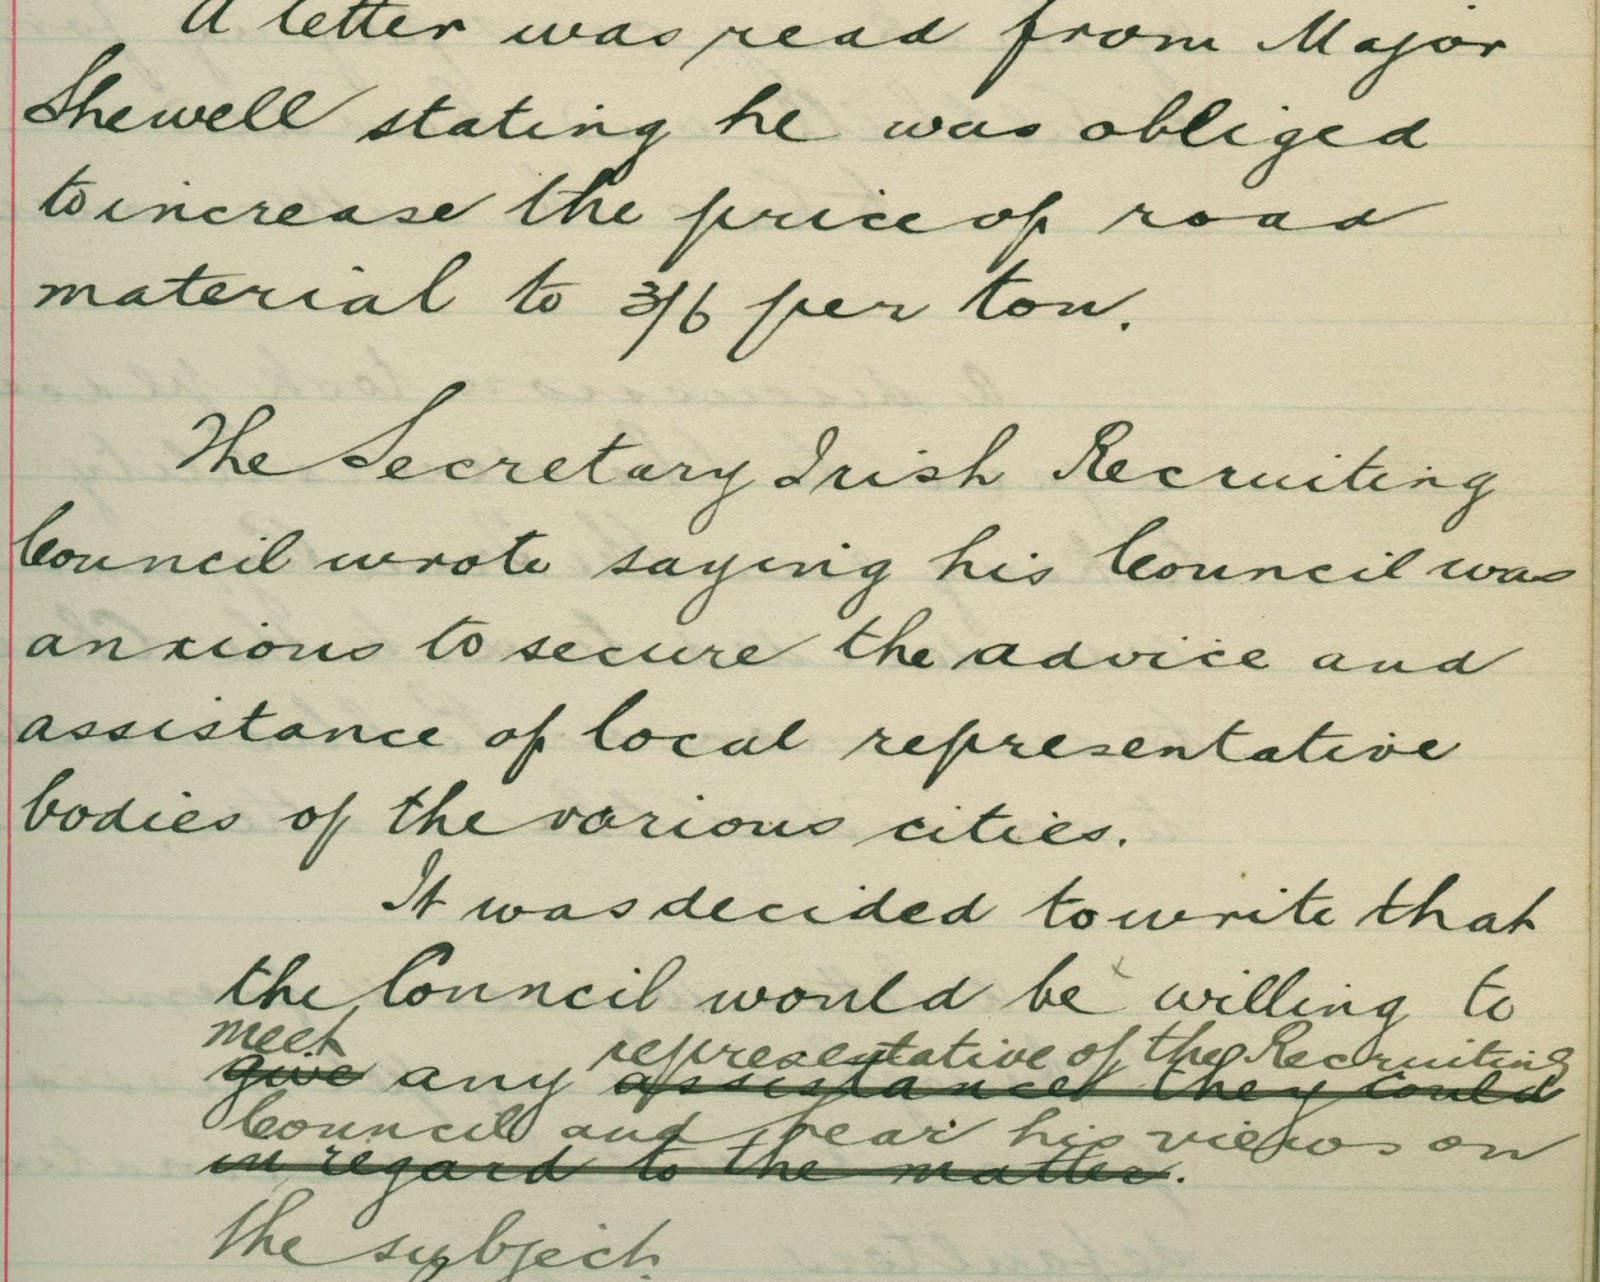 A letter was read from Major
Shewell stating he was obliged
to increase the price of road
material to 3/6 per ton.
The Secretary Irish Recruiting
Council wrote saying his Council was
anxious to secure the advice and
assistance of local representative
bodies of the various cities.
It was decided to write that
the Council would be willing to
meet representative of the Recruiting
give any assistance they could
Council and hear his views on
in regard to the matter.
the subject.